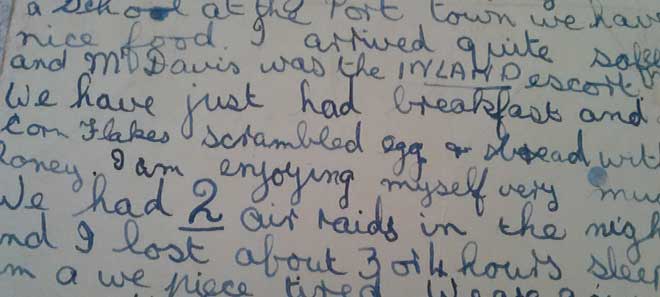 a School at the Port town we have
nice food. I arrived quite safely
and Mr Davis was the INLAND escort
We have just had breakfast and
Corn Flakes scrambled egg & bread wit
honey. I am enjoying myself very mu
We had 2 air raids in the nigh
nd I lost about 3 or 4 hours sleep
m a we piece tired